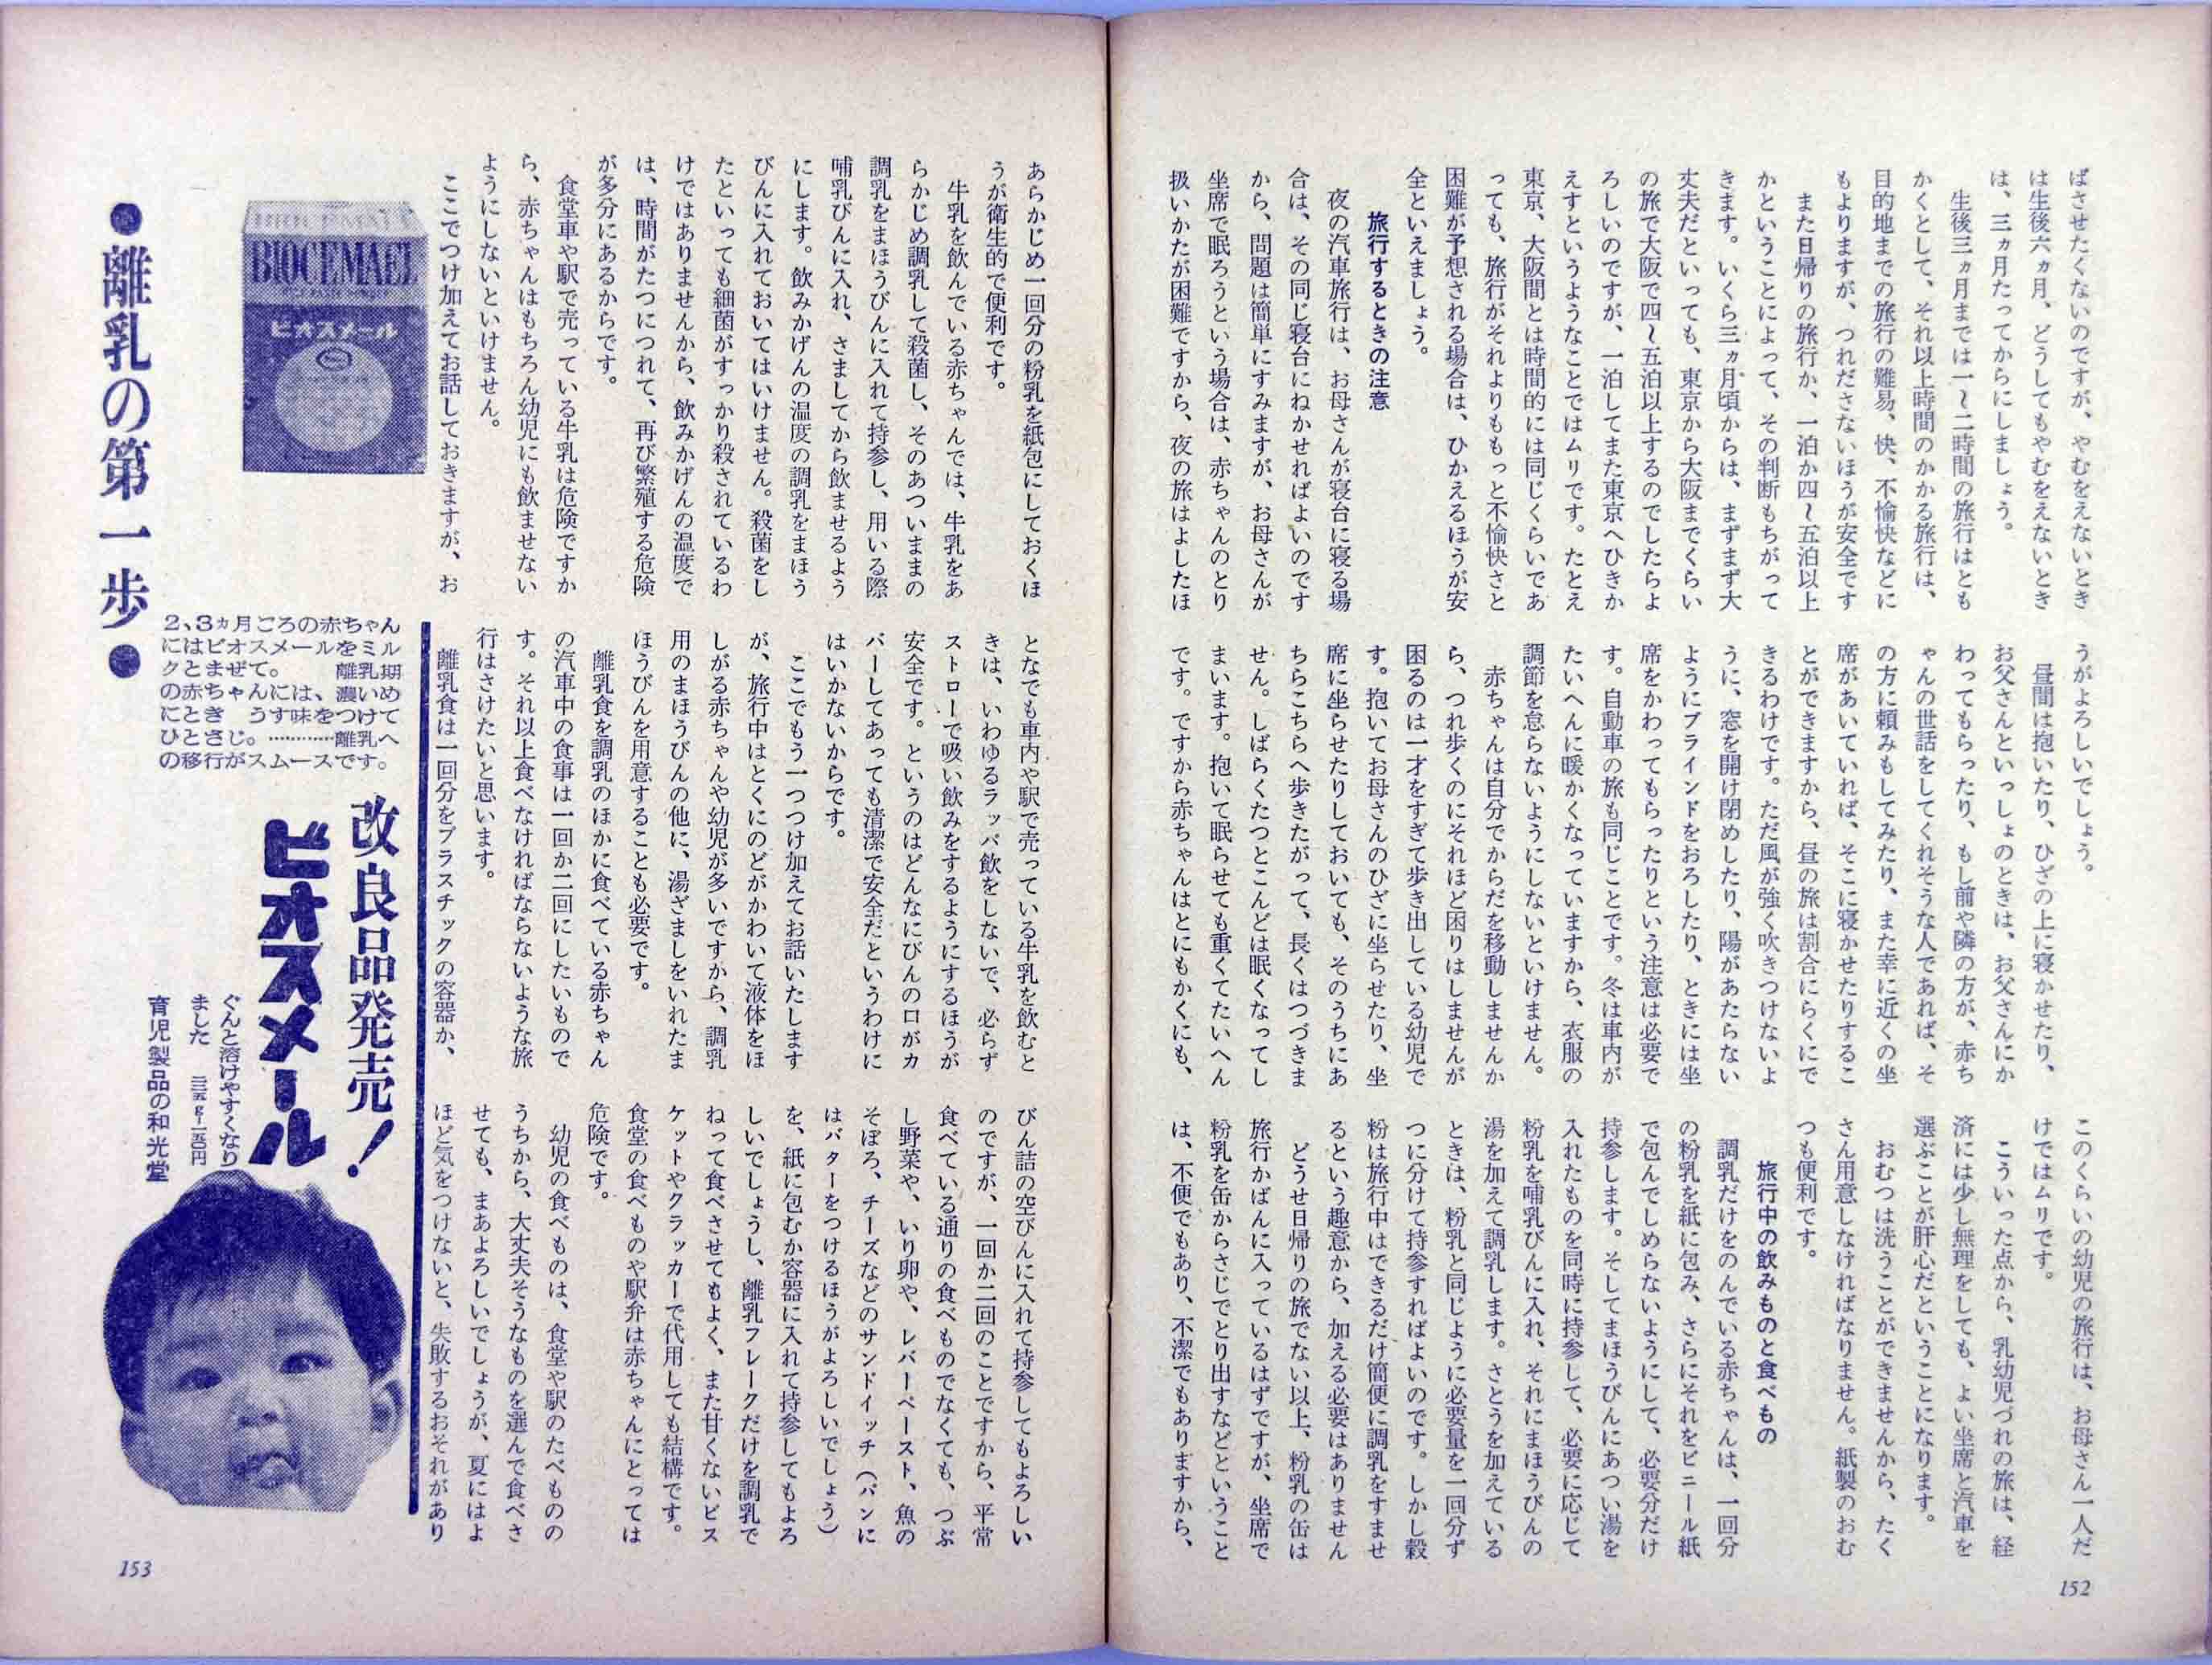 ばさせたくないのですが、やむをえないとき
は生後六ヵ月、どうしてもやむをえないとき
は、三ヵ月たってからにしましょう。
生後三ヵ月までは一〜二時間の旅行はとも
かくとして、それ以上時間のかかる旅行は、
目的地までの旅行の難易、快、不愉快などに
もよりますが、つれださないほうが安全です
また日帰りの旅行か、一泊か四〜五泊以上
かということによって、その判断もちがって
きます。いくら三ヵ月頃からは、まずまず大
丈夫だといっても、東京から大阪までくらい
の旅で大阪で四〜五泊以上するのでしたらよ
ろしいのですが、一泊してまた東京へひきか
えすというようなことではムリです。たとえ
東京、大阪間とは時間的には同じくらいであ
っても、旅行がそれよりももっと不愉快さと
困難が予想される場合は、ひかえるほうが安
全といえましょう。
旅行するときの注意
夜の汽車旅行は、お母さんが寝台に寝る場
合は、その同じ寝台にねかせればよいのです
から、問題は簡単にすみますが、お母さんが
坐席で眠ろうという場合は、赤ちゃんのとり
扱いかたが困難ですから、夜の旅はよしたほ
うがよろしいでしょう。
昼間は抱いたり、ひざの上に寝かせたり、
お父さんといっしょのときは、お父さんにか
わってもらったり、もし前や隣の方が、赤ち
ゃんの世話をしてくれそうな人であれば、そ
の方に頼みもしてみたり、また幸に近くの坐
席があいていれば、そこに寝かせたりするこ
とができますから、昼の旅は割合にらくにで
きるわけです。ただ風が強く吹きつけないよ
うに、窓を開け閉めしたり、陽があたらない
ようにブラインドをおろしたり、ときには坐
席をかわってもらったりという注意は必要で
す。自動車の旅も同じことです。冬は車内が
たいへんに暖かくなっていますから、衣服の
調節を怠らないようにしないといけません。
赤ちゃんは自分でからだを移動しませんか
ら、つれ歩くのにそれほど困りはしませんが
困るのは一才をすぎて歩き出している幼児で
す。抱いてお母さんのひざに坐らせたり、坐
席に坐らせたりしておいても、そのうちにあ
ちらこちらへ歩きたがって、長くはつづきま
せん。しばらくたつとこんどは眠くなってし
まいます。抱いて眠らせても重くてたいへん
です。ですから赤ちゃんはとにもかくにも、
このくらいの幼児の旅行は、お母さん一人だ
けではムリです。
こういった点から、乳幼児づれの旅は、経
済には少し無理をしても、よい坐席と汽車を
選ぶことが肝心だということになります。
おむつは洗うことができませんから、たく
さん用意しなければなりません。紙製のおむ
つも便利です。
旅行中の飲みものと食べもの
調乳だけをのんでいる赤ちゃんは、一回分
の粉乳を紙に包み、さらにそれをビニール紙
で包んでしめらないようにして、必要分だけ
持参します。そしてまほうびんにあつい湯を
入れたものを同時に持参して、必要に応じて
粉乳を哺乳びんに入れ、それにまほうびんの
湯を加えて調乳します。さとうを加えている
ときは、粉乳と同じように必要量を一回分ず
つに分けて持参すればよいのです。しかし穀
粉は旅行中はできるだけ簡便に調乳をすませ
るという趣意から、加える必要はありません
どうせ日帰りの旅でない以上、粉乳の缶は
旅行かばんに入っているはずですが、坐席で
粉乳を缶からさじでとり出すなどということ
は、不便でもあり、不潔でもありますから、
152
あらかじめ一回分の粉乳を紙包にしておくほ
うが衛生的で便利です。
牛乳を飲んでいる赤ちゃんでは、牛乳をあ
らかじめ調乳して殺菌し、そのあついままの
調乳をまほうびんに入れて持参し、用いる際
哺乳びんに入れ、さましてから飲ませるよう
にします。飲みかげんの温度の調乳をまほう
びんに入れておいてはいけません。殺菌をし
たといっても細菌がすっかり殺されているわ
けではありませんから、飲みかげんの温度で
は、時間がたつにつれて、再び繁殖する危険
が多分にあるからです。
食堂車や駅で売っている牛乳は危険ですか
ら、赤ちゃんはもちろん幼児にも飲ませない
ようにしないといけません。
ここでつけ加えてお話しておきますが、お
となでも車内や駅で売っている牛乳を飲むと
きは、いわゆるラッパ飲をしないで、必らず
ストローで吸い飲みをするようにするほうが
安全です。というのはどんなにびんの口がカ
バーしてあっても清潔で安全だというわけに
はいかないからです。
ここでもう一つつけ加えてお話いたします
が、旅行中はとくにのどがかわいて液体をほ
しがる赤ちゃんや幼児が多いですから、調乳
用のまほうびんの他に、湯ざましをいれたま
ほうびんを用意することも必要です。
離乳食を調乳のほかに食べている赤ちゃん
の汽車中の食事は一回か二回にしたいもので
す。それ以上食べなければならないような旅
行はさけたいと思います。
離乳食は一回分をプラスチックの容器か、
びん詰の空びんに入れて持参してもよろしい
のですが、一回か二回のことですから、平常
食べている通りの食べものでなくても、つぶ
し野菜や、いり卵や、レバーペースト、魚の
そぼろ、チーズなどのサンドイッチ（パンに
はバターをつけるほうがよろしいでしょう）
を、紙に包むか容器に入れて持参してもよろ
しいでしょうし、離乳フレークだけを調乳で
ねって食べさせてもよく、また甘くないビス
ケットやクラッカーで代用しても結構です。
食堂の食べものや駅弁は赤ちゃんにとっては
危険です。
幼児の食べものは、食堂や駅のたべものの
うちから、大丈夫そうなものを選んで食べさ
せても、まあよろしいでしょうが、夏にはよ
ほど気をつけないと、失敗するおそれがあり
BIOCEMAEL
ビオスメール
●離乳の第一歩●
2、3ヵ月ごろの赤ちゃん
にはビオスメールをミル
クとまぜて。 離乳期
の赤ちゃんには、濃いめ
にとき うす味をつけて
ひとさじ。…………離乳へ
の移行がスムースです。
改良品発売！
ビオスメール
ぐんと溶けやすくなり
ました
育児製品の和光堂
153